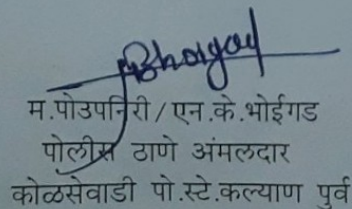 Bhoigad
म.पोउपनिरी/एन.के.भोईगड
पोलीस ठाणे अंमलदार
कोळसेवाडी पो.स्टे.कल्याण पुर्व